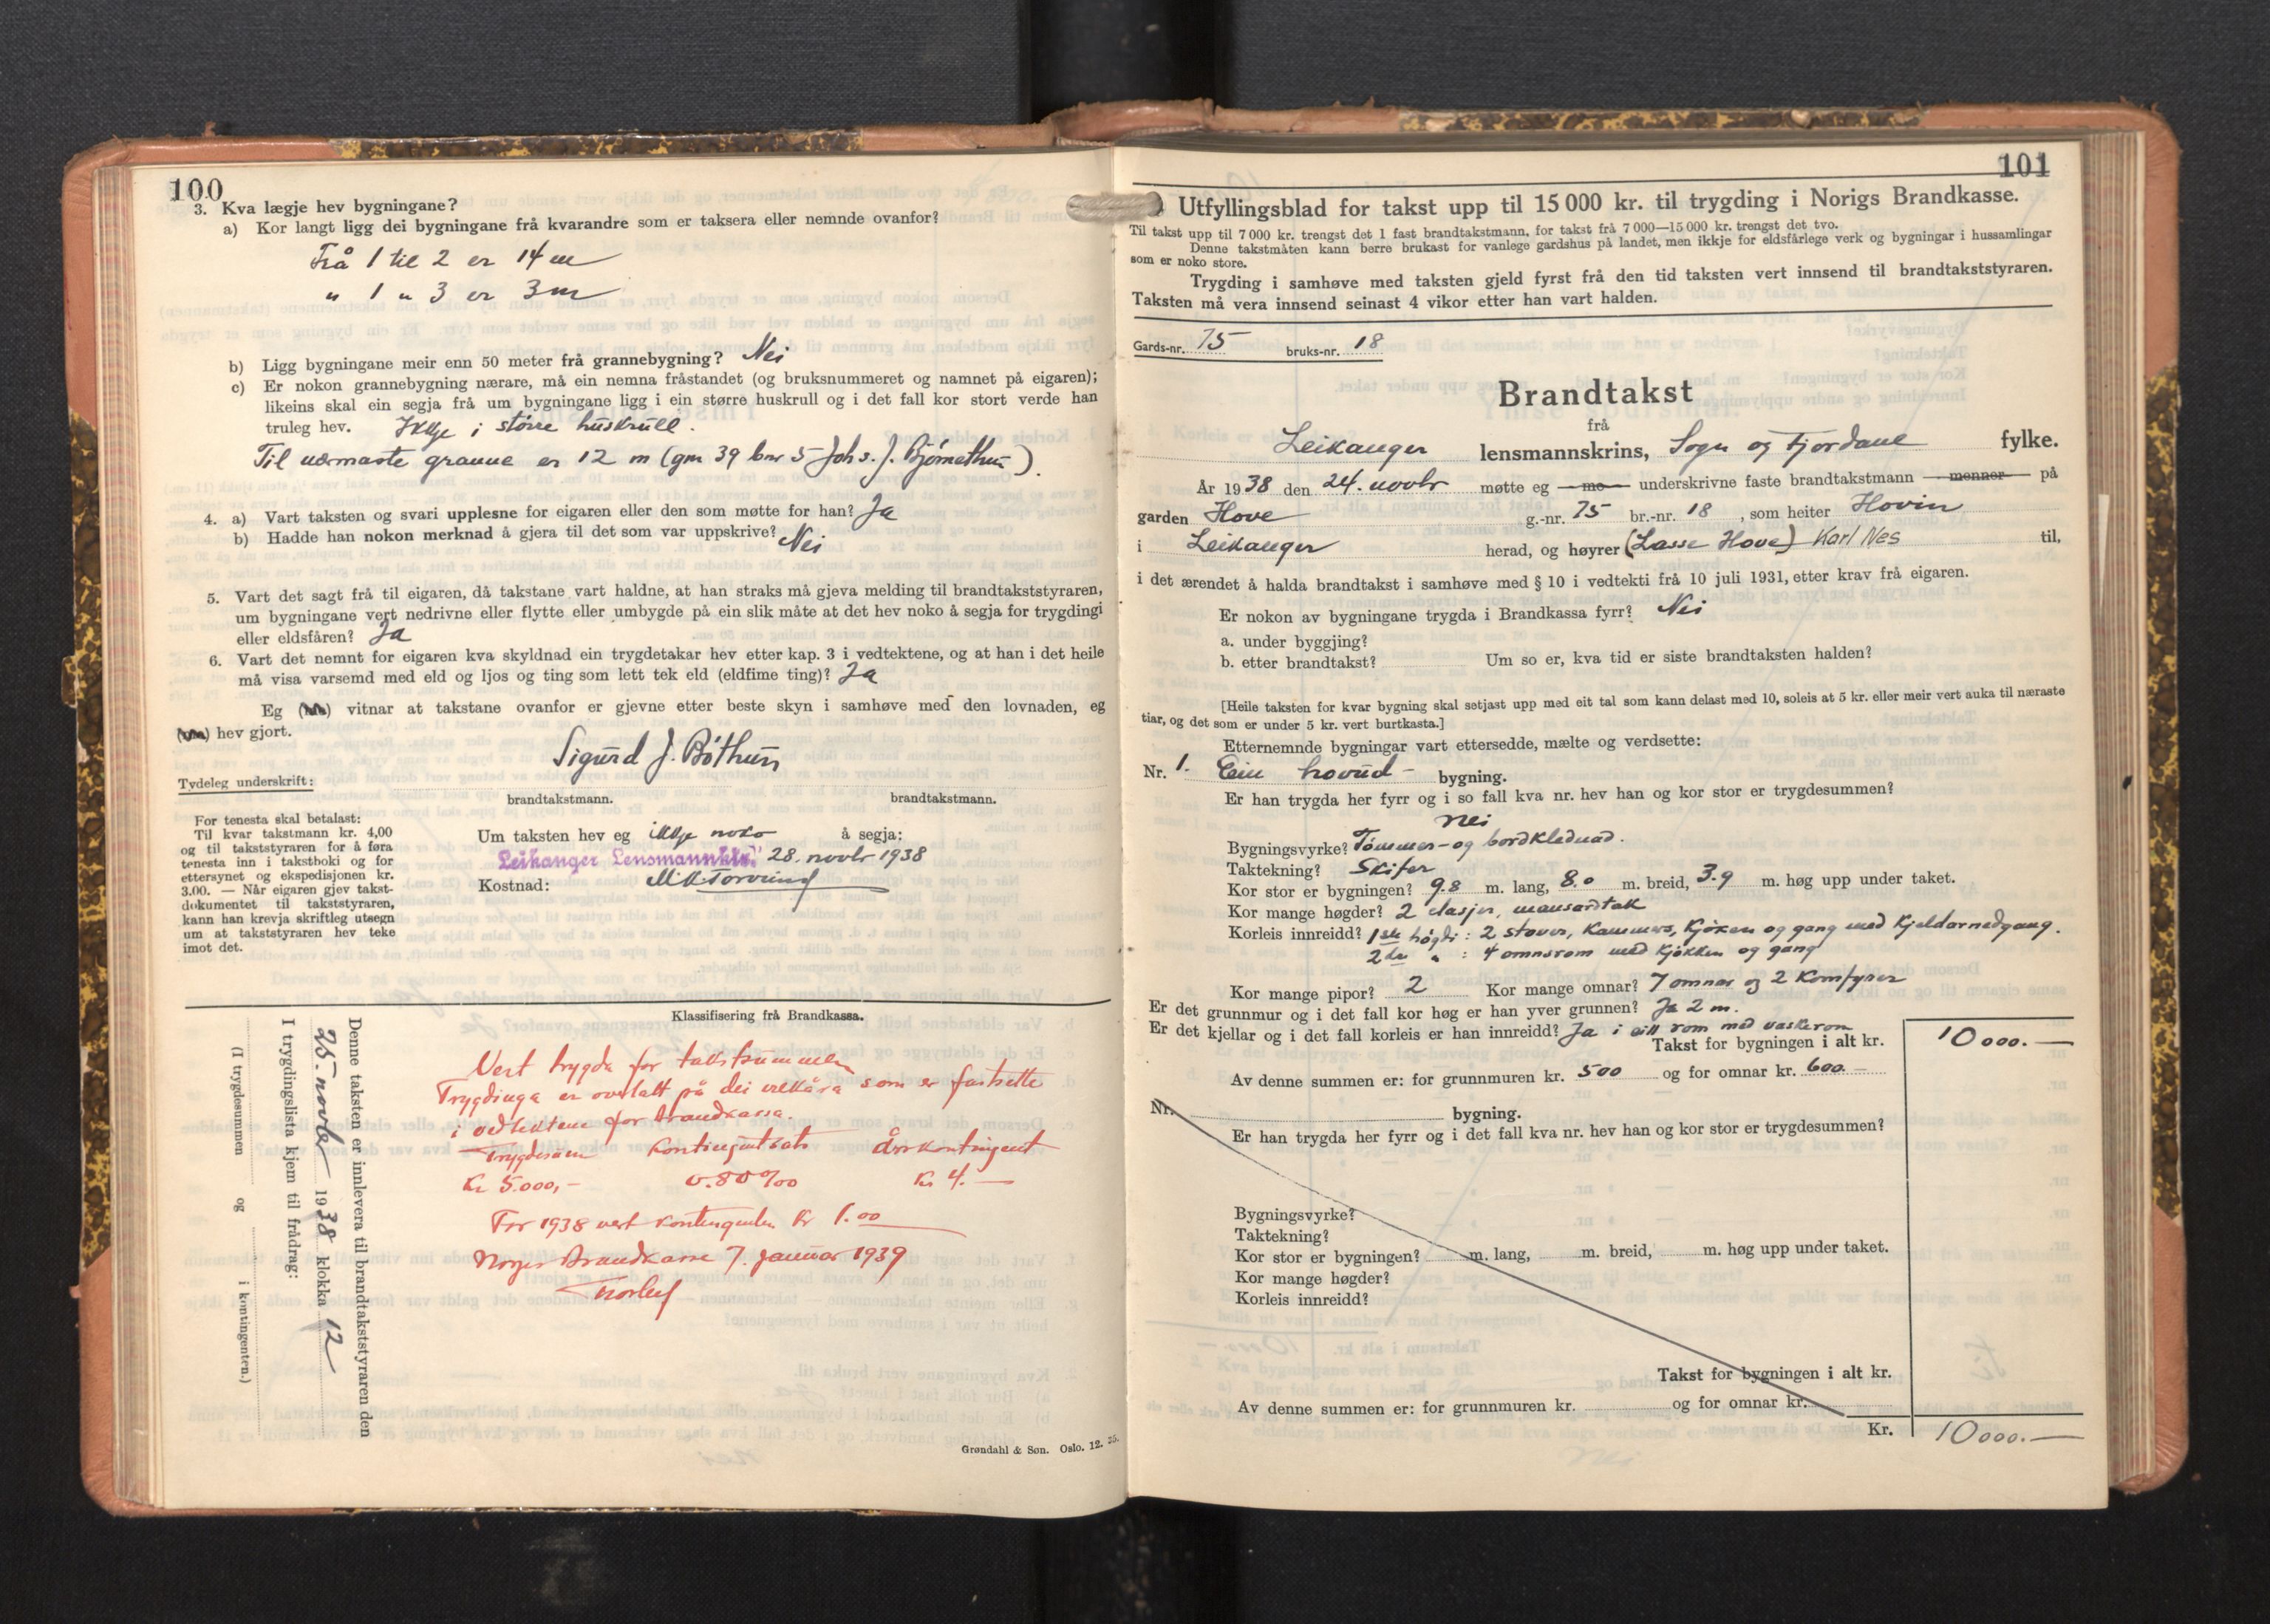 100
3. Kva lægje hev bygningane?
a) Kor langt ligg dei bygningane frå kvarandre som er taksera eller nemnde ovanfor?
Frå 1 til 2 er 14 m
" 1 " 3 er 3 m
b) Ligg bygningane meir enn 50 meter frå grannebygning? Nei
c) Er nokon grannebygning nærare, må ein nemna fråstandet (og bruksnummeret og namnet på eigaren);
likeins skal ein segja frå um bygningane ligg i ein større huskrull og i det fall kor stort verde han
truleg hev. Ikkje i større huskrull.
Til nærmaste granne er 12 m (gnr 39 bnr 5 Johs. J. Bjørnethun).
4. a) Vart taksten og svari upplesne for eigaren eller den som møtte for han? Ja
b) Hadde han nokon merknad å gjera til det som var uppskrive? Nei
5. Vart det sagt frå til eigaren, då takstane vart haldne, at han straks må gjeva melding til brandtakststyraren,
um bygningane vert nedrivne eller flytte eller umbygde på ein slik måte at det hev noko å segja for trygdingi
eller eldsfåren? Ja
6. Vart det nemnt for eigaren kva skyldnad ein trygdetakar hev etter kap. 3 i vedtektene, og at han i det heile
må visa varsemd med eld og ljos og ting som lett tek eld (eldfime ting)? Ja
Eg (me) vitnar at takstane ovanfor er gjevne etter beste skyn i samhøve med den lovnaden, eg
(me) hev gjort.
Sigurd J. Bøthun
Tydeleg underskrift:
brandtakstmann. brandtakstmann.
For tenesta skal betalast:
Til kvar takstmann kr. 4,00
og til takststyraren for å føra
tenesta inn i takstboki og for
ettersynet og ekspedisjonen kr.
3.00. — Når eigaren gjev takst-
dokumentet til takststyraren,
kann han krevja skriftleg utsegn
um at takststyraren hev teke
imot det.
Um taksten hev eg ikkje noko å segja:
Leikanger Lensmannktr. 28. novbr 1938
Kostnad:
Klassifisering frå Brandkassa.
Vert trygda for takstsummen
Trygdinga er overlatt på dei vilkåra som er fastsette
i vedtektene for Brandkassa.
Trygdesum Kontingentsats årskontingent
Kr 5.000,- 0.80 ‰ Kr 4.—
For 1938 vert kontingenten Kr 1.00
Norges Brandkasse 7. januar 1939
Denne taksten er innlevera til brandtakststyraren den
25. novbr 1938 klokka 12
I trygdingslista kjem til frådrag:
(I trygdesummen og i kontingenten.)
Grøndahl & Søn. Oslo. 12. 35.
101
Utfyllingsblad for takst upp til 15 000 kr. til trygding i Norigs Brandkasse.
Til takst upp til 7 000 kr. trengst det 1 fast brandtakstmann, for takst frå 7 000—15 000 kr. trengst det tvo.
Denne takstmåten kann berre brukast for vanlege gardshus på landet, men ikkje for eldsfårlege verk og bygningar i hussamlingar
som er noko store.
Trygding i samhøve med taksten gjeld fyrst frå den tid taksten vert innsend til brandtakststyraren.
Taksten må vera innsend seinast 4 vikor etter han vart halden.
Gards-nr. 75 bruks-nr. 18
Brandtakst
frå
Leikanger lensmannskrins, Sogn og Fjordane fylke.
År 1938 den 24. novbr møtte eg me underskrivne faste brandtakstmann menner på
garden Hove g.-nr. 75 br.-nr. 18, som heiter Hovin
i Leikanger herad, og høyrer (Lasse Hove) Karl Nes til,
i det ærendet å halda brandtakst i samhøve med § 10 i vedtekti frå 10 juli 1931, etter krav frå eigaren.
Er nokon av bygningane trygda i Brandkassa fyrr? Nei
a. under byggjing?
b. etter brandtakst? Um so er, kva tid er siste brandtaksten halden?
[Heile taksten for kvar bygning skal setjast upp med eit tal som kann delast med 10, soleis at 5 kr. eller meir vert auka til næraste
tiar, og det som er under 5 kr. vert burtkasta.]
Etternemnde bygningar vart ettersedde, mælte og verdsette:
Nr. 1. Ein hovud- bygning.
Er han trygda her fyrr og i so fall kva nr. hev han og kor stor er trygdesummen?
Nei
Bygningsvyrke? Tømmer- og bordklednad.
Taktekning? Skifer
Kor stor er bygningen? 9.8 m. lang, 8.0 m. breid, 3.9 m. høg upp under taket.
Kor mange høgder? 2 etasjer, mansardtak
Korleis innreidd? 1ste høgd: 2 stover, kammers, kjøken og gang med kjeldarnedgang.
2dre " : 4 omnsrom med kjøkken og gang
Kor mange pipor? 2 Kor mange omnar? 7 omnar og 2 komfyrer
Er det grunnmur og i det fall kor høg er han yver grunnen? Ja 2 m.
Er det kjellar og i det fall korleis er han innreidd? Ja i eitt rom med vaskerom
Takst for bygningen i alt kr. 10000.—
Av denne summen er: for grunnmuren kr. 500 og for omnar kr. 600.—
Nr. bygning.
Er han trygda her fyrr og i det fall kva nr. hev han og kor stor er trygdesummen?
Bygningsvyrke?
Taktekning?
Kor stor er bygningen? m. lang, m. breid, m. høg upp under taket.
Kor mange høgder?
Korleis innreidd?
Takst for bygningen i alt kr.
Av denne summen er: for grunnmuren kr. og for omnar kr.
Kr. 10000.—